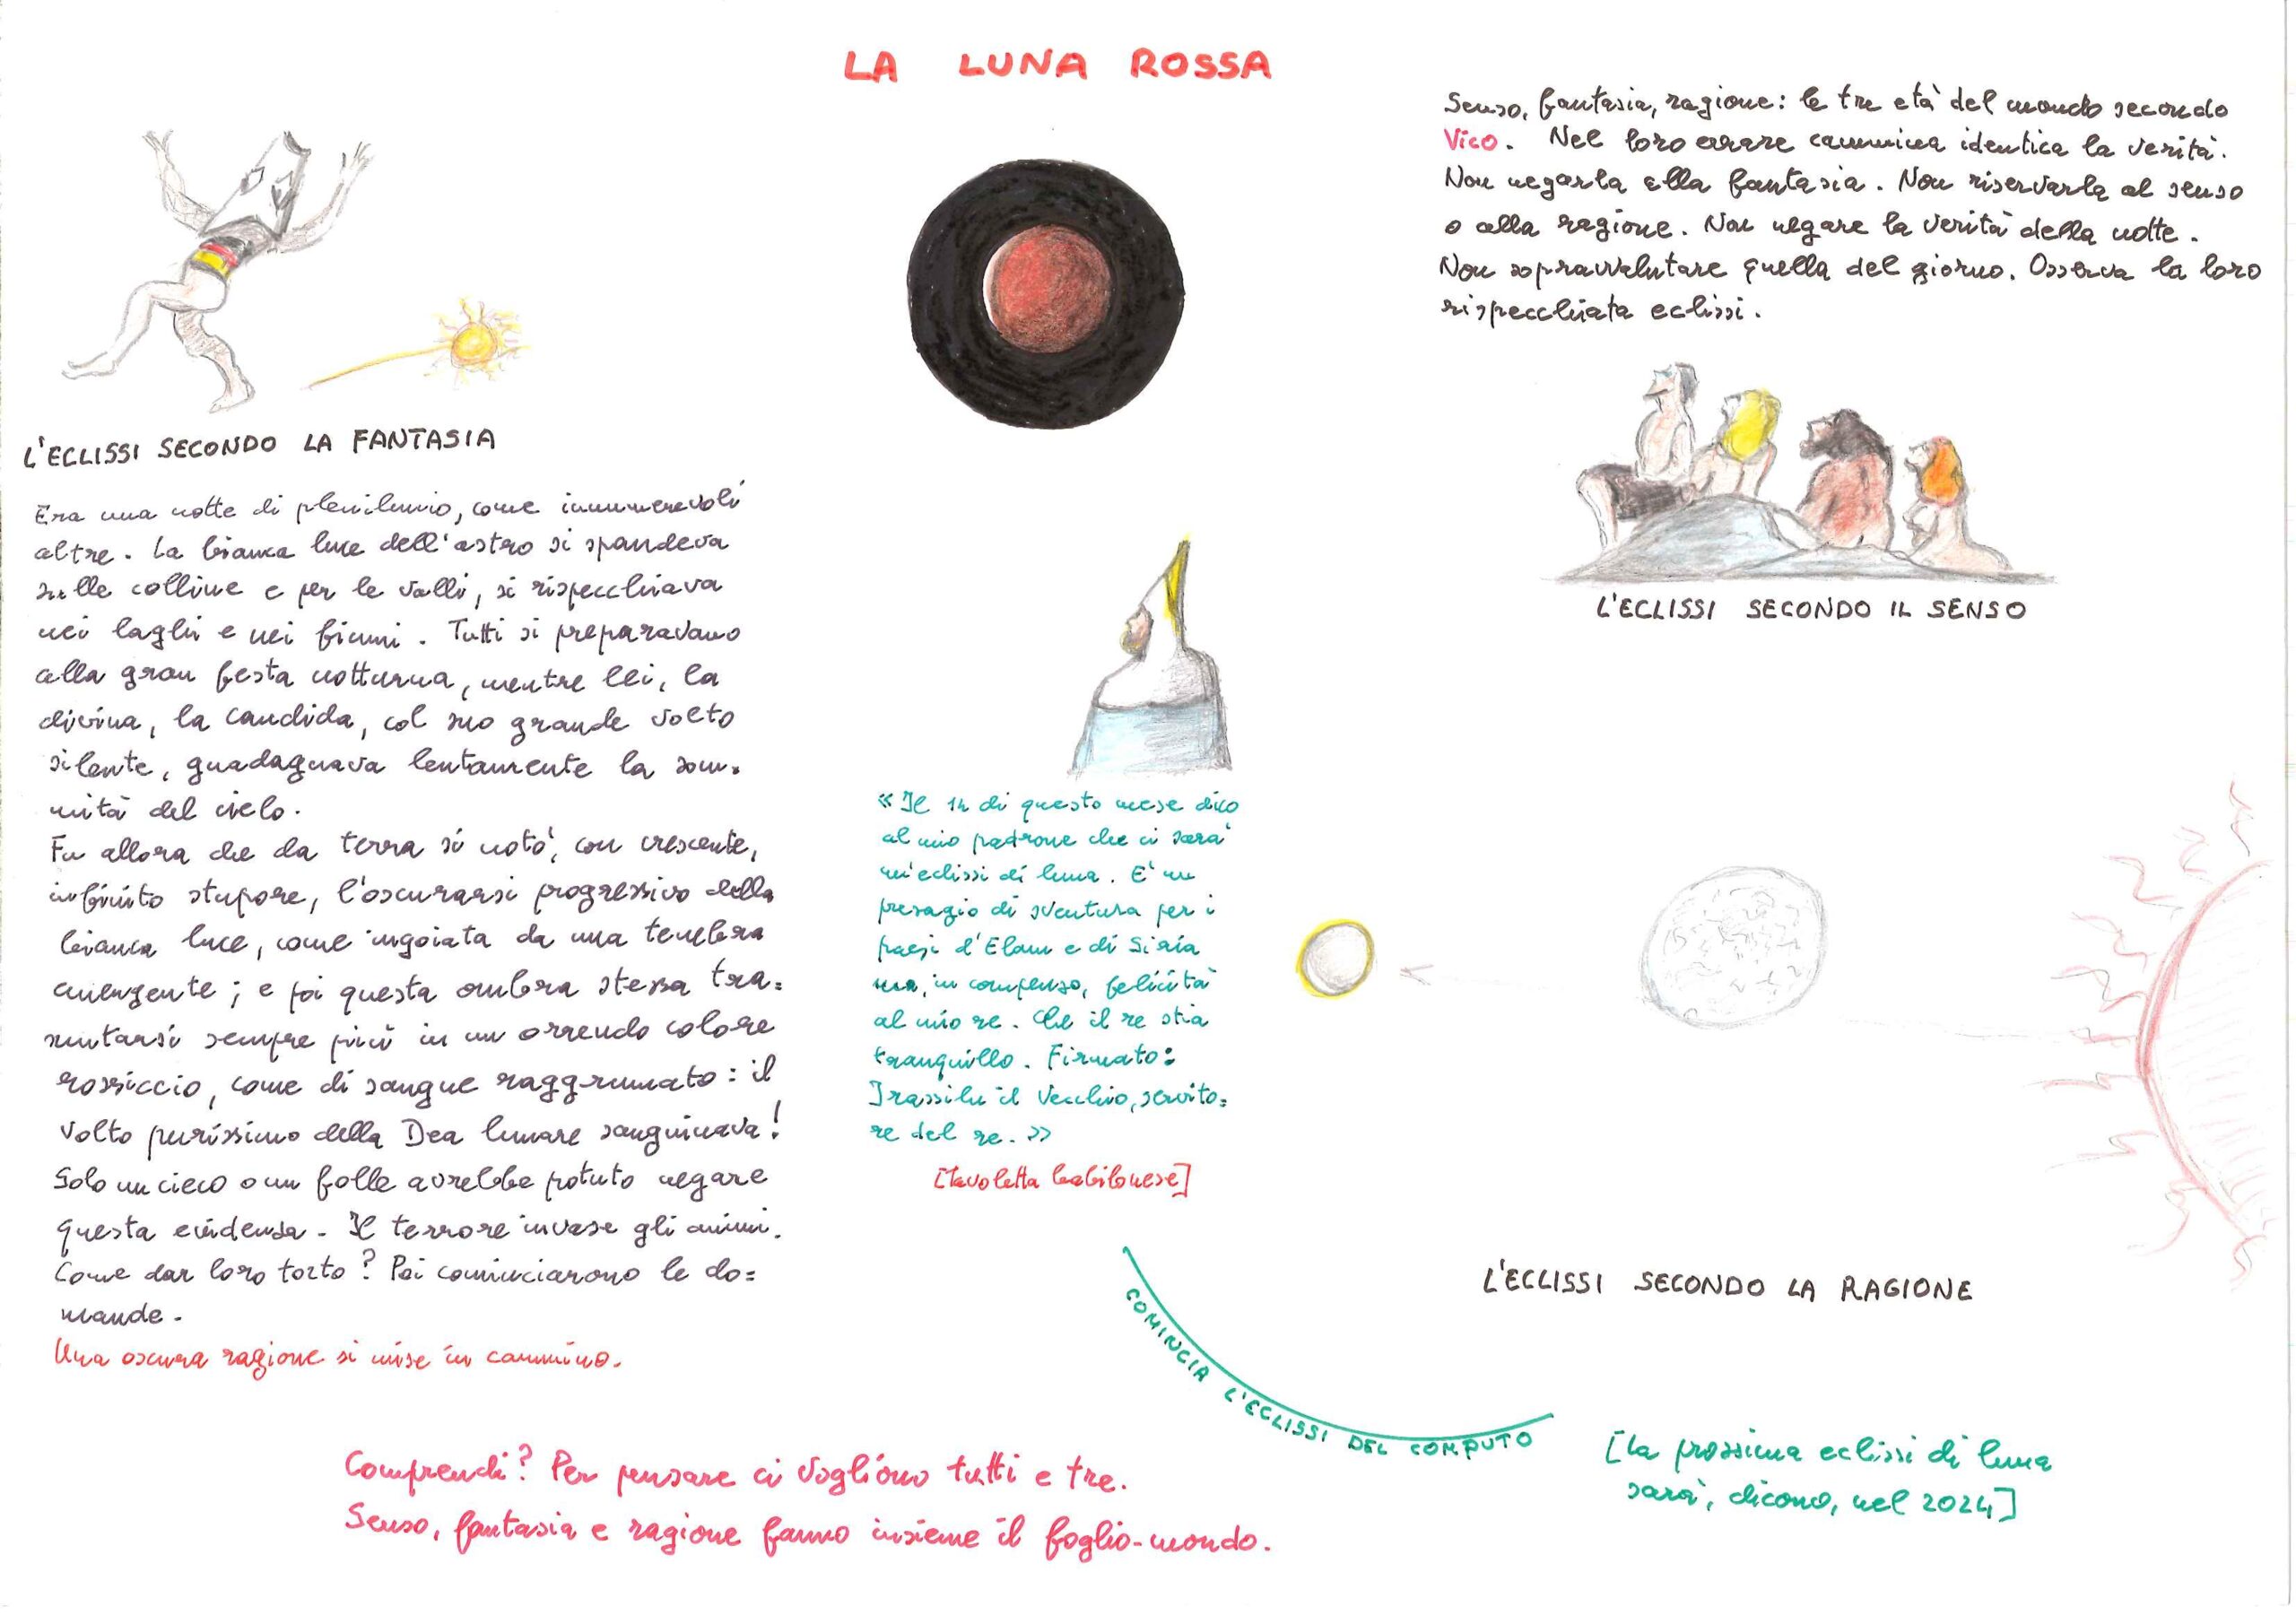 LA LUNA ROSSA
L'ECLISSI SECONDO LA FANTASIA
Era una notte di plenilunio, come innumerevoli
altre. La bianca luce dell'astro si spandeva
sulle colline e per le valli, si rispecchiava
nei laghi e nei fiumi. Tutti si preparavano
alla gran festa notturna, mentre lei, la
divina, la candida, col suo grande volto
silente, guadagnava lentamente la som=
mità del cielo.
Fu allora che da terra si notò, con crescente,
infinito stupore, l'oscurarsi progressivo della
bianca luce, come ingoiata da una tenebra
emergente; e poi questa ombra stessa tra=
smutarsi sempre più in un orrendo colore
rossiccio, come di sangue raggrumato: il
volto purissimo della Dea lunare sanguinava!
Solo un cieco o un folle avrebbe potuto negare
questa evidenza. Il terrore invase gli animi.
Come dar loro torto? Poi cominciarono le do=
mande.
Una oscura ragione si mise in cammino.
«Il 14 di questo mese dico
al mio padrone che ci sarà
un'eclissi di luna. E' un
presagio di sventura per i
paesi d'Elam e di Siria
ma, in compenso, felicità
al mio re. Che il re stia
tranquillo. Firmato:
Irassilu il Vecchio, servito=
re del re.»
[Tavoletta babilonese]
Senso, fantasia, ragione: le tre età del mondo secondo
Vico. Nel loro errare cammina identica la verità.
Non negarla alla fantasia. Non riservarla al senso
o alla ragione. Non negare la verità della notte.
Non sopravvalutare quella del giorno. Osserva la loro
rispecchiata eclissi.
L'ECLISSI SECONDO IL SENSO
L'ECLISSI SECONDO LA RAGIONE
COMINCIA L'ECLISSI DEL COMPUTO
[La prossima eclissi di luna
sarà, dicono, nel 2024]
Comprendi? Per pensare ci vogliono tutti e tre.
Senso, fantasia e ragione fanno insieme il foglio-mondo.